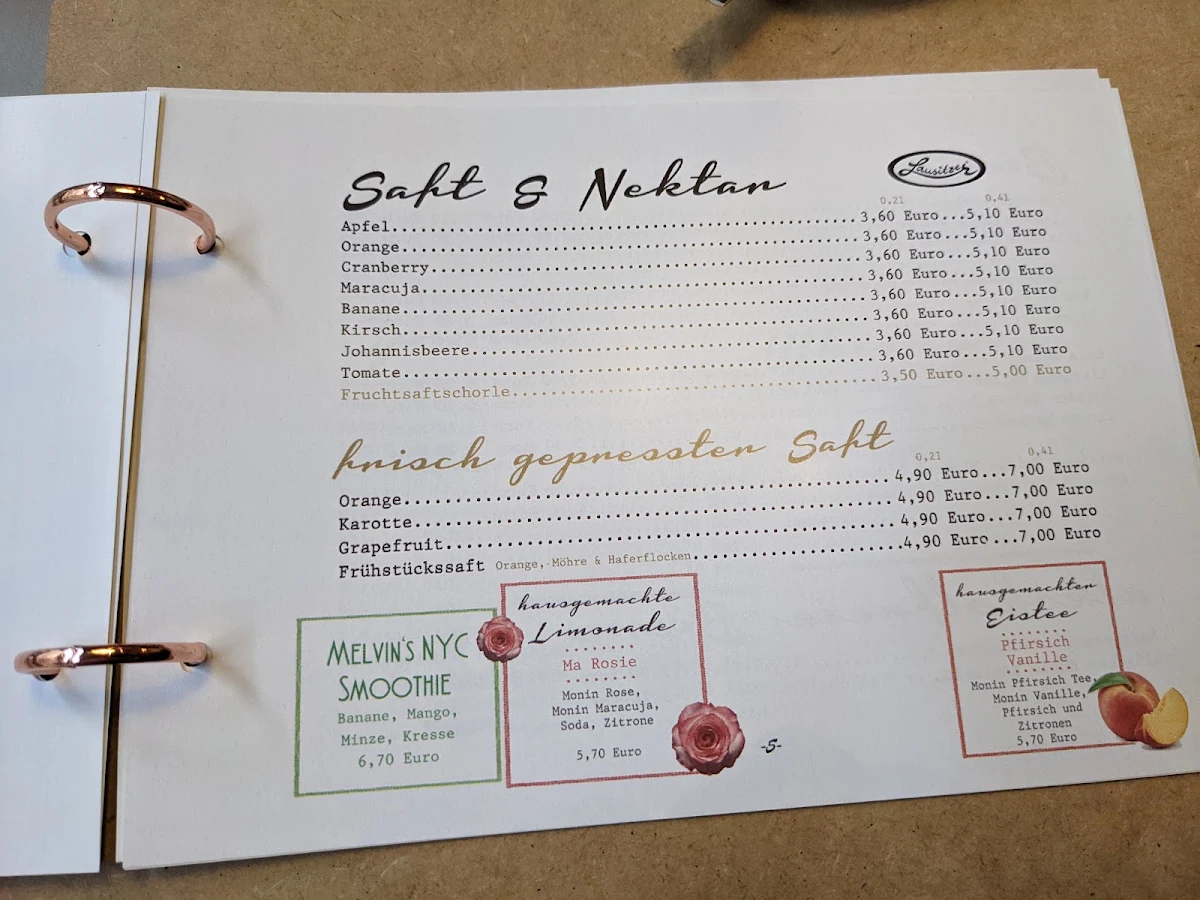 Saft & Nektar
Lausitzer
0,2l 0,4l
Apfel................................................3,60 Euro...5,10 Euro
Orange...............................................3,60 Euro...5,10 Euro
Cranberry............................................3,60 Euro...5,10 Euro
Maracuja.............................................3,60 Euro...5,10 Euro
Banane...............................................3,60 Euro...5,10 Euro
Kirsch...............................................3,60 Euro...5,10 Euro
Johannisbeere........................................3,60 Euro...5,10 Euro
Tomate...............................................3,60 Euro...5,10 Euro
Fruchtsaftschorle....................................3,50 Euro...5,00 Euro
frisch gepresster Saft
0,2l 0,4l
Orange...............................................4,90 Euro...7,00 Euro
Karotte..............................................4,90 Euro...7,00 Euro
Grapefruit...........................................4,90 Euro...7,00 Euro
Frühstückssaft Orange, Möhre & Haferflocken.....................4,90 Euro...7,00 Euro
MELVIN'S NYC
SMOOTHIE
Banane, Mango,
Minze, Kresse
6,70 Euro
hausgemachte
Limonade
Ma Rosie
Monin Rose,
Monin Maracuja,
Soda, Zitrone
5,70 Euro
-5-
hausgemachten
Eistee
Pfirsich
Vanille
Monin Pfirsich Tee,
Monin Vanille,
Pfirsich und
Zitronen
5,70 Euro